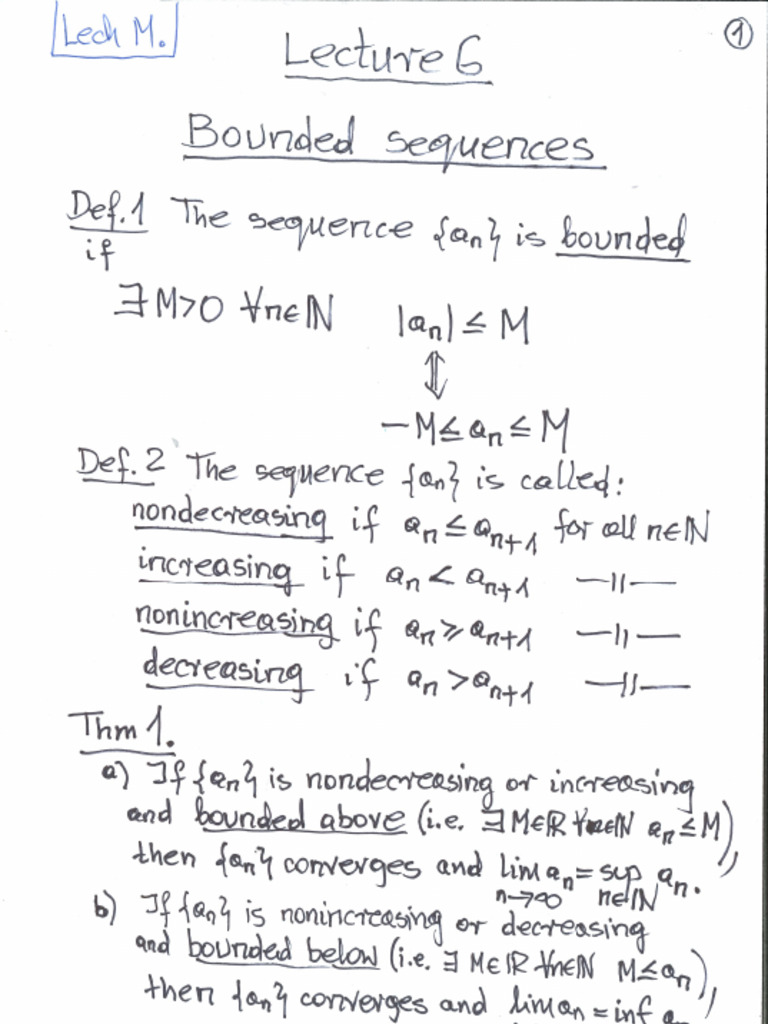 Lech M.
1
Lecture 6
Bounded sequences
Def. 1 The sequence {aₙ} is bounded
if
∃ M>0 ∀n∈ℕ |aₙ| ≤ M
⇕
−M ≤ aₙ ≤ M
Def. 2 The sequence {aₙ} is called:
nondecreasing if aₙ ≤ aₙ₊₁ for all n∈ℕ
increasing if aₙ < aₙ₊₁ —||—
nonincreasing if aₙ ≥ aₙ₊₁ —||—
decreasing if aₙ > aₙ₊₁ —||—
Thm 1.
a) If {aₙ} is nondecreasing or increasing
and bounded above (i.e. ∃ M∈ℝ ∀n∈ℕ aₙ ≤ M),
then {aₙ} converges and lim aₙ = sup aₙ.
n→∞ n∈ℕ
b) If {aₙ} is nonincreasing or decreasing
and bounded below (i.e. ∃ M∈ℝ ∀n∈ℕ M ≤ aₙ),
then {aₙ} converges and lim aₙ = inf aₙ